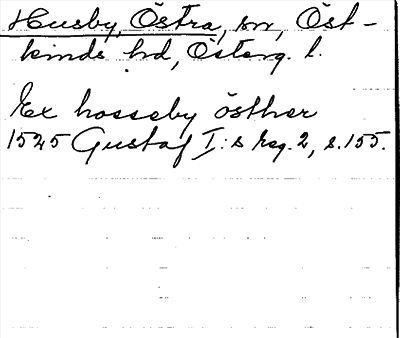 Husby, Östra, sn, Öst-
kinds hd, Österg. l.
Ex hosseby östher
1525 Gustaf I:s reg. 2, s. 155.